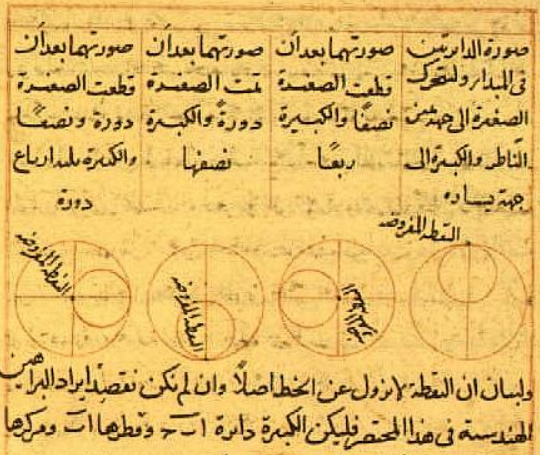 صورة الدايرتين
فى المبدا ولتتحرك
الصغيرة الى جهة يمين
الناظر والكبيرة الى
جهة يساره
صورتهما بعد ان
قطعت الصغيرة
نصفًا والكبيرة
ربعًا
صورتهما بعد ان
تمت الصغيرة
دورةً والكبيرة
نصفها
صورتهما بعد ان
قطعت الصغيرة
دورة ونصفًا
والكبيرة ثلثة ارباع
دورة
النقطة المفروضة
النقطة المفروضة
النقطة المفروضة
ولبيان ان النقطة لا تزول عن الخط اصلًا وان لم يكن نقصد ايراد البراهين
الهندسية فى هذا المختصر فليكن الكبيرة دائرة وقطرها اب ومركزها